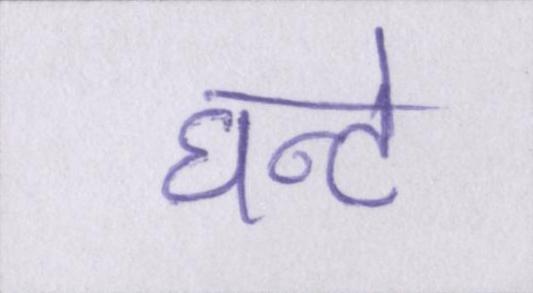 घन्टे